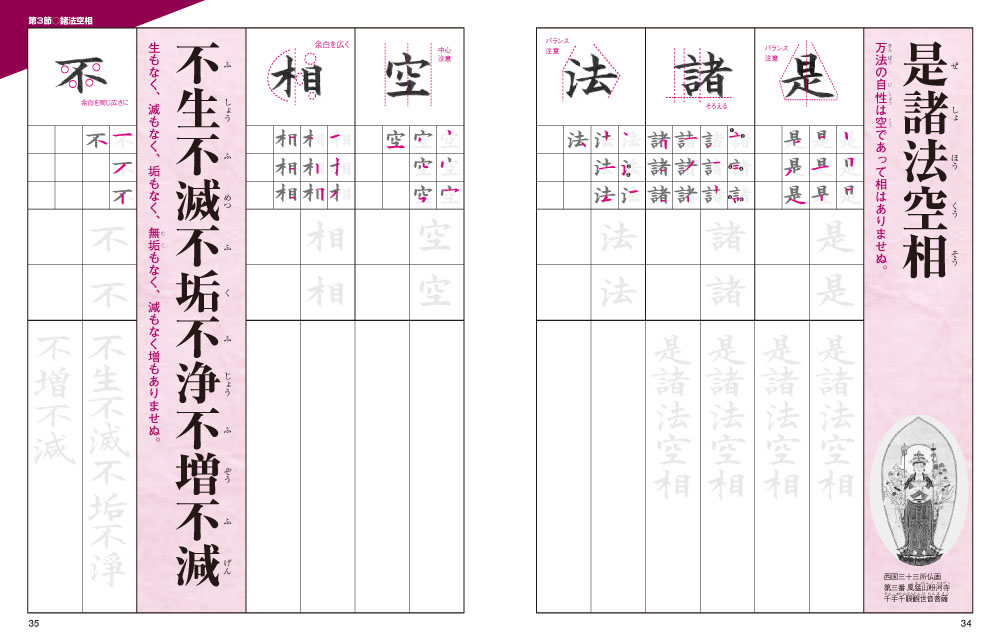 第3節○諸法空相
是諸法空相
ぜ しょ ほう くう そう
万法の自性は空であって相はありませぬ。
西国三十三所仏画
第三番 風猛山粉河寺
千手千眼観世音菩薩
バランス
注意
是
諸
そろえる
バランス
注意
法
是 是
諸 諸
法 法
是諸法空相
是諸法空相
是諸法空相
是諸法空相
34
中心
注意
空
余白を広く
相
空 空
相 相
不生不滅不垢不浄不増不減
ふ しょう ふ めつ ふ く ふ じょう ふ ぞう ふ げん
生もなく、滅もなく、垢もなく、無垢もなく、減もなく増もありませぬ。
不
余白を同じ広さに
不 不
不生不滅不垢不淨
不増不減
35